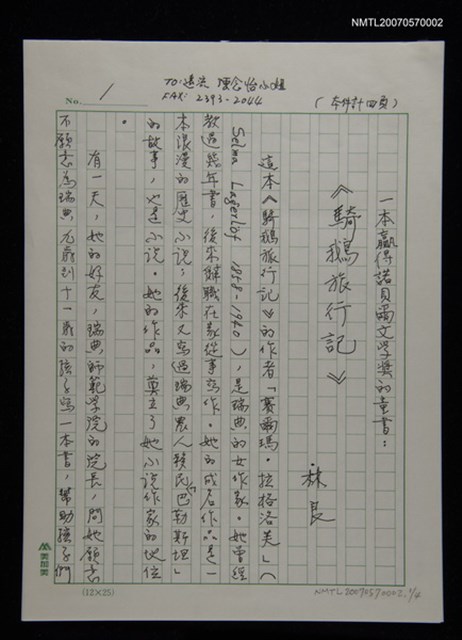 NMTL20070570002
TO:遠流 陳念怡小姐
FAX: 2393-2044
(本件計四頁)
No. 1
一本贏得諾貝爾文學獎的童書:
《騎鵝旅行記》
林良
這本《騎鵝旅行記》的作者「賽爾瑪·拉格洛芙」(
Selma Lagerlöf 1848-1940),是瑞典的女作家。她曾經
教過幾年書,後來辭職在家從事寫作。她的成名作品是一
本浪漫的歷史小說;後來又寫過瑞典農人移民「巴勒斯坦」
的故事,也是小說。她的作品,奠立了她小說作家的地位
。
有一天,她的好友,瑞典師範學院的院長,問她願意
不願意為瑞典九歲到十一歲的孩子寫一本書,幫助孩子們
(12×25)
NMTL20070570002. 1/4